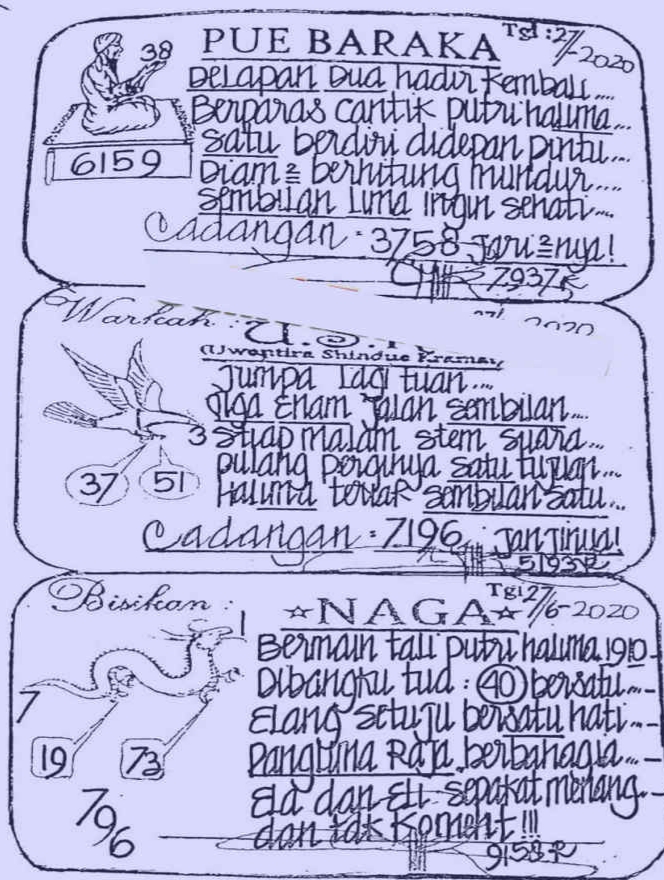 PUE BARAKA
Tgl : 27/-2020
38
6159
Delapan Dua hadir kembali....
Berparas cantik putri halima...
Satu berdiri didepan pintu...
Diam ² berhitung mundur....
Sembilan Lima ingin sehati...
Cadangan : 3758 Jari²nya!
7937
Warkah :
2020
(Uwentira Shindue Kramat)
Jumpa Lagi tuan...
Tiga Enam Jalan sembilan...
3 Stiap malam stem suara...
pulang perginya satu tujuan...
Halima tolak sembilan satu...
37 51
Cadangan : 7196 Janjinya!
5193
Bisikan :
☆NAGA☆
Tgl 27/6-2020
1
Bermain tali putri halima.1910-
Dibangku tua : 40 bersatu...-
Elang setuju bersatu hati...-
Panglima Raja berbahagia...-
Ela dan Eli sepakat menang.-
dan tak koment!!!
7
19 73
796
9158